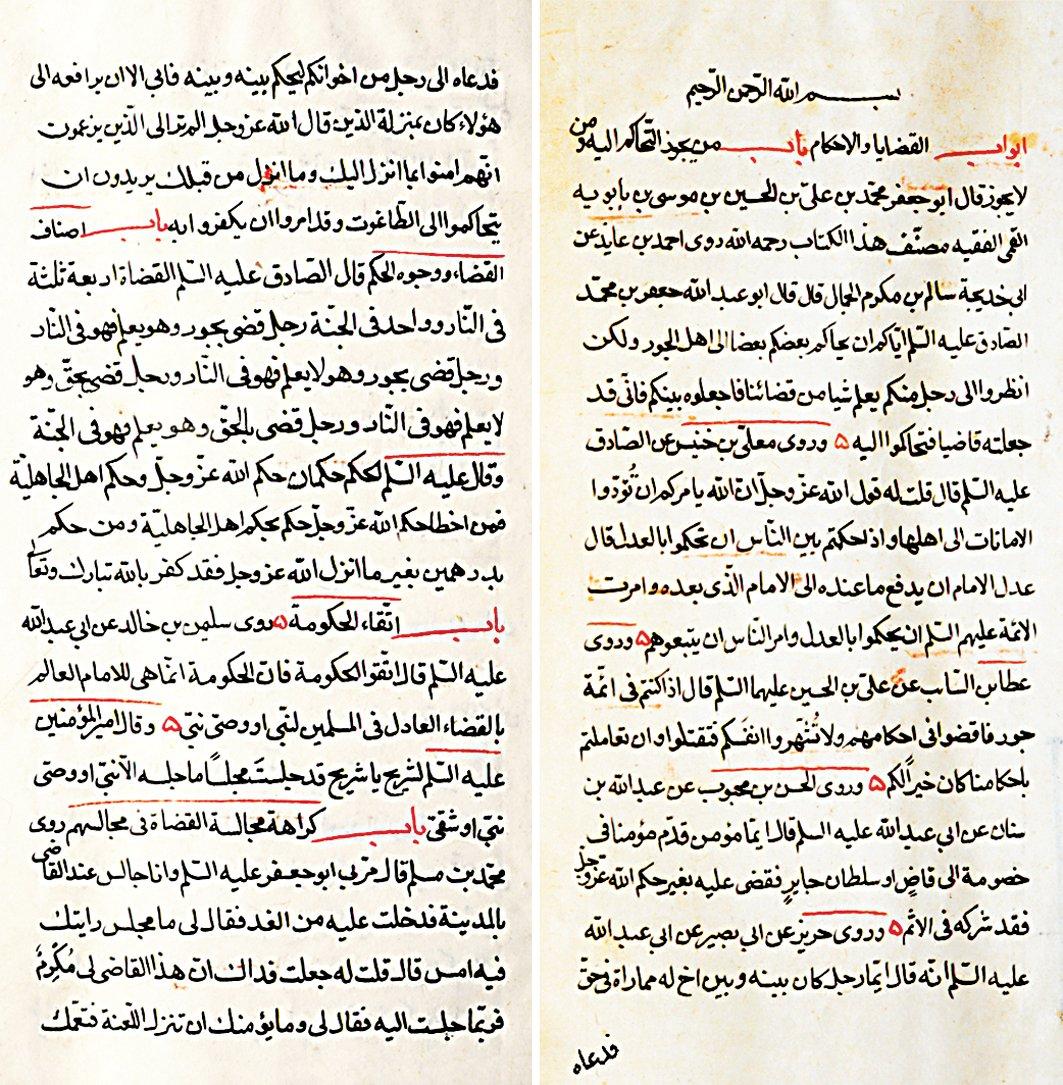 بسم الله الرّحمن الرّحيم
ابواب القضايا والاحكام باب من يجوز التّحاكم اليه ومن
لا يجوز قال ابو جعفر محمّد بن علىّ بن الحسين بن موسى بن بابويه
القمى الفقيه مصنّف هذا الكتاب رحمه الله روى احمد بن عايذ عن
ابى خديجة سالم بن مكرم الجمال قال قال ابو عبد الله جعفر بن محمّد
الصّادق عليه السّلم ايّاكم ان يحاكم بعضكم بعضا الى اهل الجور ولكن
انظروا الى رجل منكم يعلم شيا من قضائنا فاجعلوه بينكم فانّى قد
جعلته قاضيا فتحاكموا اليه ۵ وروى معلّى بن خنيس عن الصّادق
عليه السّلم قال قلت له قول الله عزّ وجلّ انّ الله يامركم ان تُؤدّوا
الامانات الى اهلها واذ احكمتم بين النّاس ان تحكموا بالعدل قال
عدل الامام ان يدفع ما عنده الى الامام الّذى بعده وامرت
الائمّة عليهم السّلم ان يحكموا بالعدل وامر النّاس ان يتبعوهم ۵ وروى
عطا بن السّاب عن علىّ بن الحسين عليهما السّلم قال اذا كنتم فى ائمّة
جور فاقضوا فى احكامهم ولا تُشْهِروا انفسكم فتقتلوا وان تعاملتم
باحكامنا كان خيرًا لكم ۵ وروى الحسن بن محبوب عن عبد الله بن
سنان عن ابى عبد الله عليه السلم قال ايّما مؤمن قدّم مؤمنا فى
خصومة الى قاضٍ او سلطان جايرٍ فقضى عليه بغير حكم الله عزّ وجلّ
فقد شركه فى الاثم ۵ وروى حريز عن ابى بصير عن ابى عبد الله
عليه السّلم انّه قال ايّما رجل كان بينه وبين اخ له مماراة فى حقّ
فدعاه
فدعاه الى رجل من اخوانكم ليحكم بينه وبينه فابى الا ان يرافعه الى
هؤلاء كان بمنزلة الذين قال الله عز وجل الم تر الى الّذين يزعمون
انّهم امنوا بما انزل اليك وما انزل من قبلك يريدون ان
يتحاكموا الى الطّاغوت وقد امروا ان يكفروا به باب اصناف
القضاء ووجوه الحكم قال الصّادق عليه السّلم القضاة اربعة ثلثة
فى النّار وواحد فى الجنّة رجل قضى بجور وهو يعلم فهو فى النّار
ورجل قضى بجور وهو لا يعلم فهو فى النّار ورجل قضى بحقّ وهو
لا يعلم فهو فى النّار ورجل قضى بالحقّ وهو يعلم فهو فى الجنّة
وقال عليه السّلم الحكم حكمان حكم الله عزّ وجلّ وحكم اهل الجاهليّة
فمن اخطا حكم الله عزّ وجلّ حكم بحكم اهل الجاهليّة ومن حكم
بدرهمين بغير ما انزل الله عز وجل فقد كفر بالله تبارك وتعالى
باب اتّقاء الحكومة ۵ روى سليمن بن خالد عن ابى عبد الله
عليه السّلم قال اتّقوا الحكومة فانّ الحكومة انّما هى للامام العالم
بالقضاء العادل فى المسلمين لنبّى او وصىّ نبّى ۵ وقال امير المؤمنين
عليه السّلم لشريح يا شريح قد جلستَ مجلسًا ما جلسه الّا نبّى او وصىّ
نبّى او شقىّ باب كراهة مجالسة القضاة فى مجالسهم روى
محمّد بن مسلم قال مرّ بى ابو جعفر عليه السّلم وانا جالس عند القاضى
بالمدينة فدخلت عليه من الغد فقال لى ما مجلس رايتك
فيه امس قال قلت له جعلت فداك انّ هذا القاضى لى مُكْرِمٌ
فربّما جلست اليه فقال لى وما يؤمنك ان تنزل اللّعنة فتعمّك